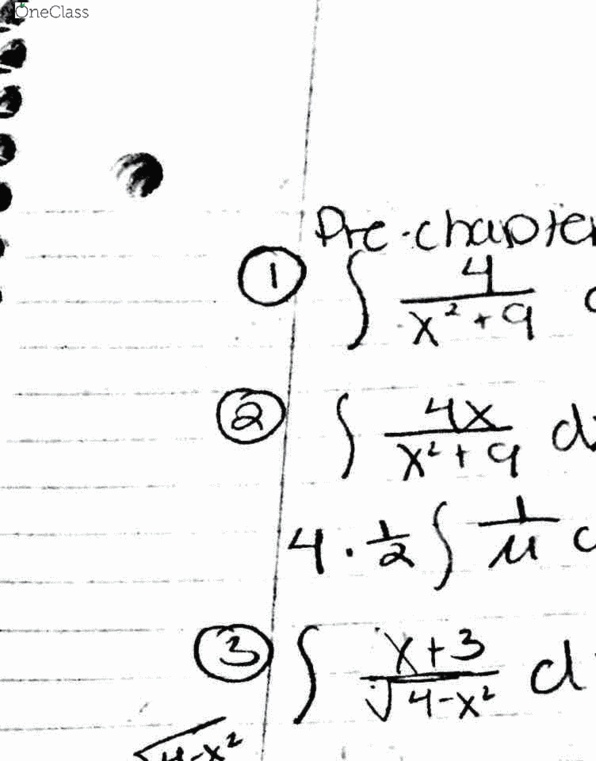 OneClass
Pre-chapter
① ∫ 4/(x² + 9)
② ∫ 4x/(x² + 9) d
4 · 1/2 ∫ 1/u
③ ∫ (x+3)/√(4-x²) d
√(4-x²)